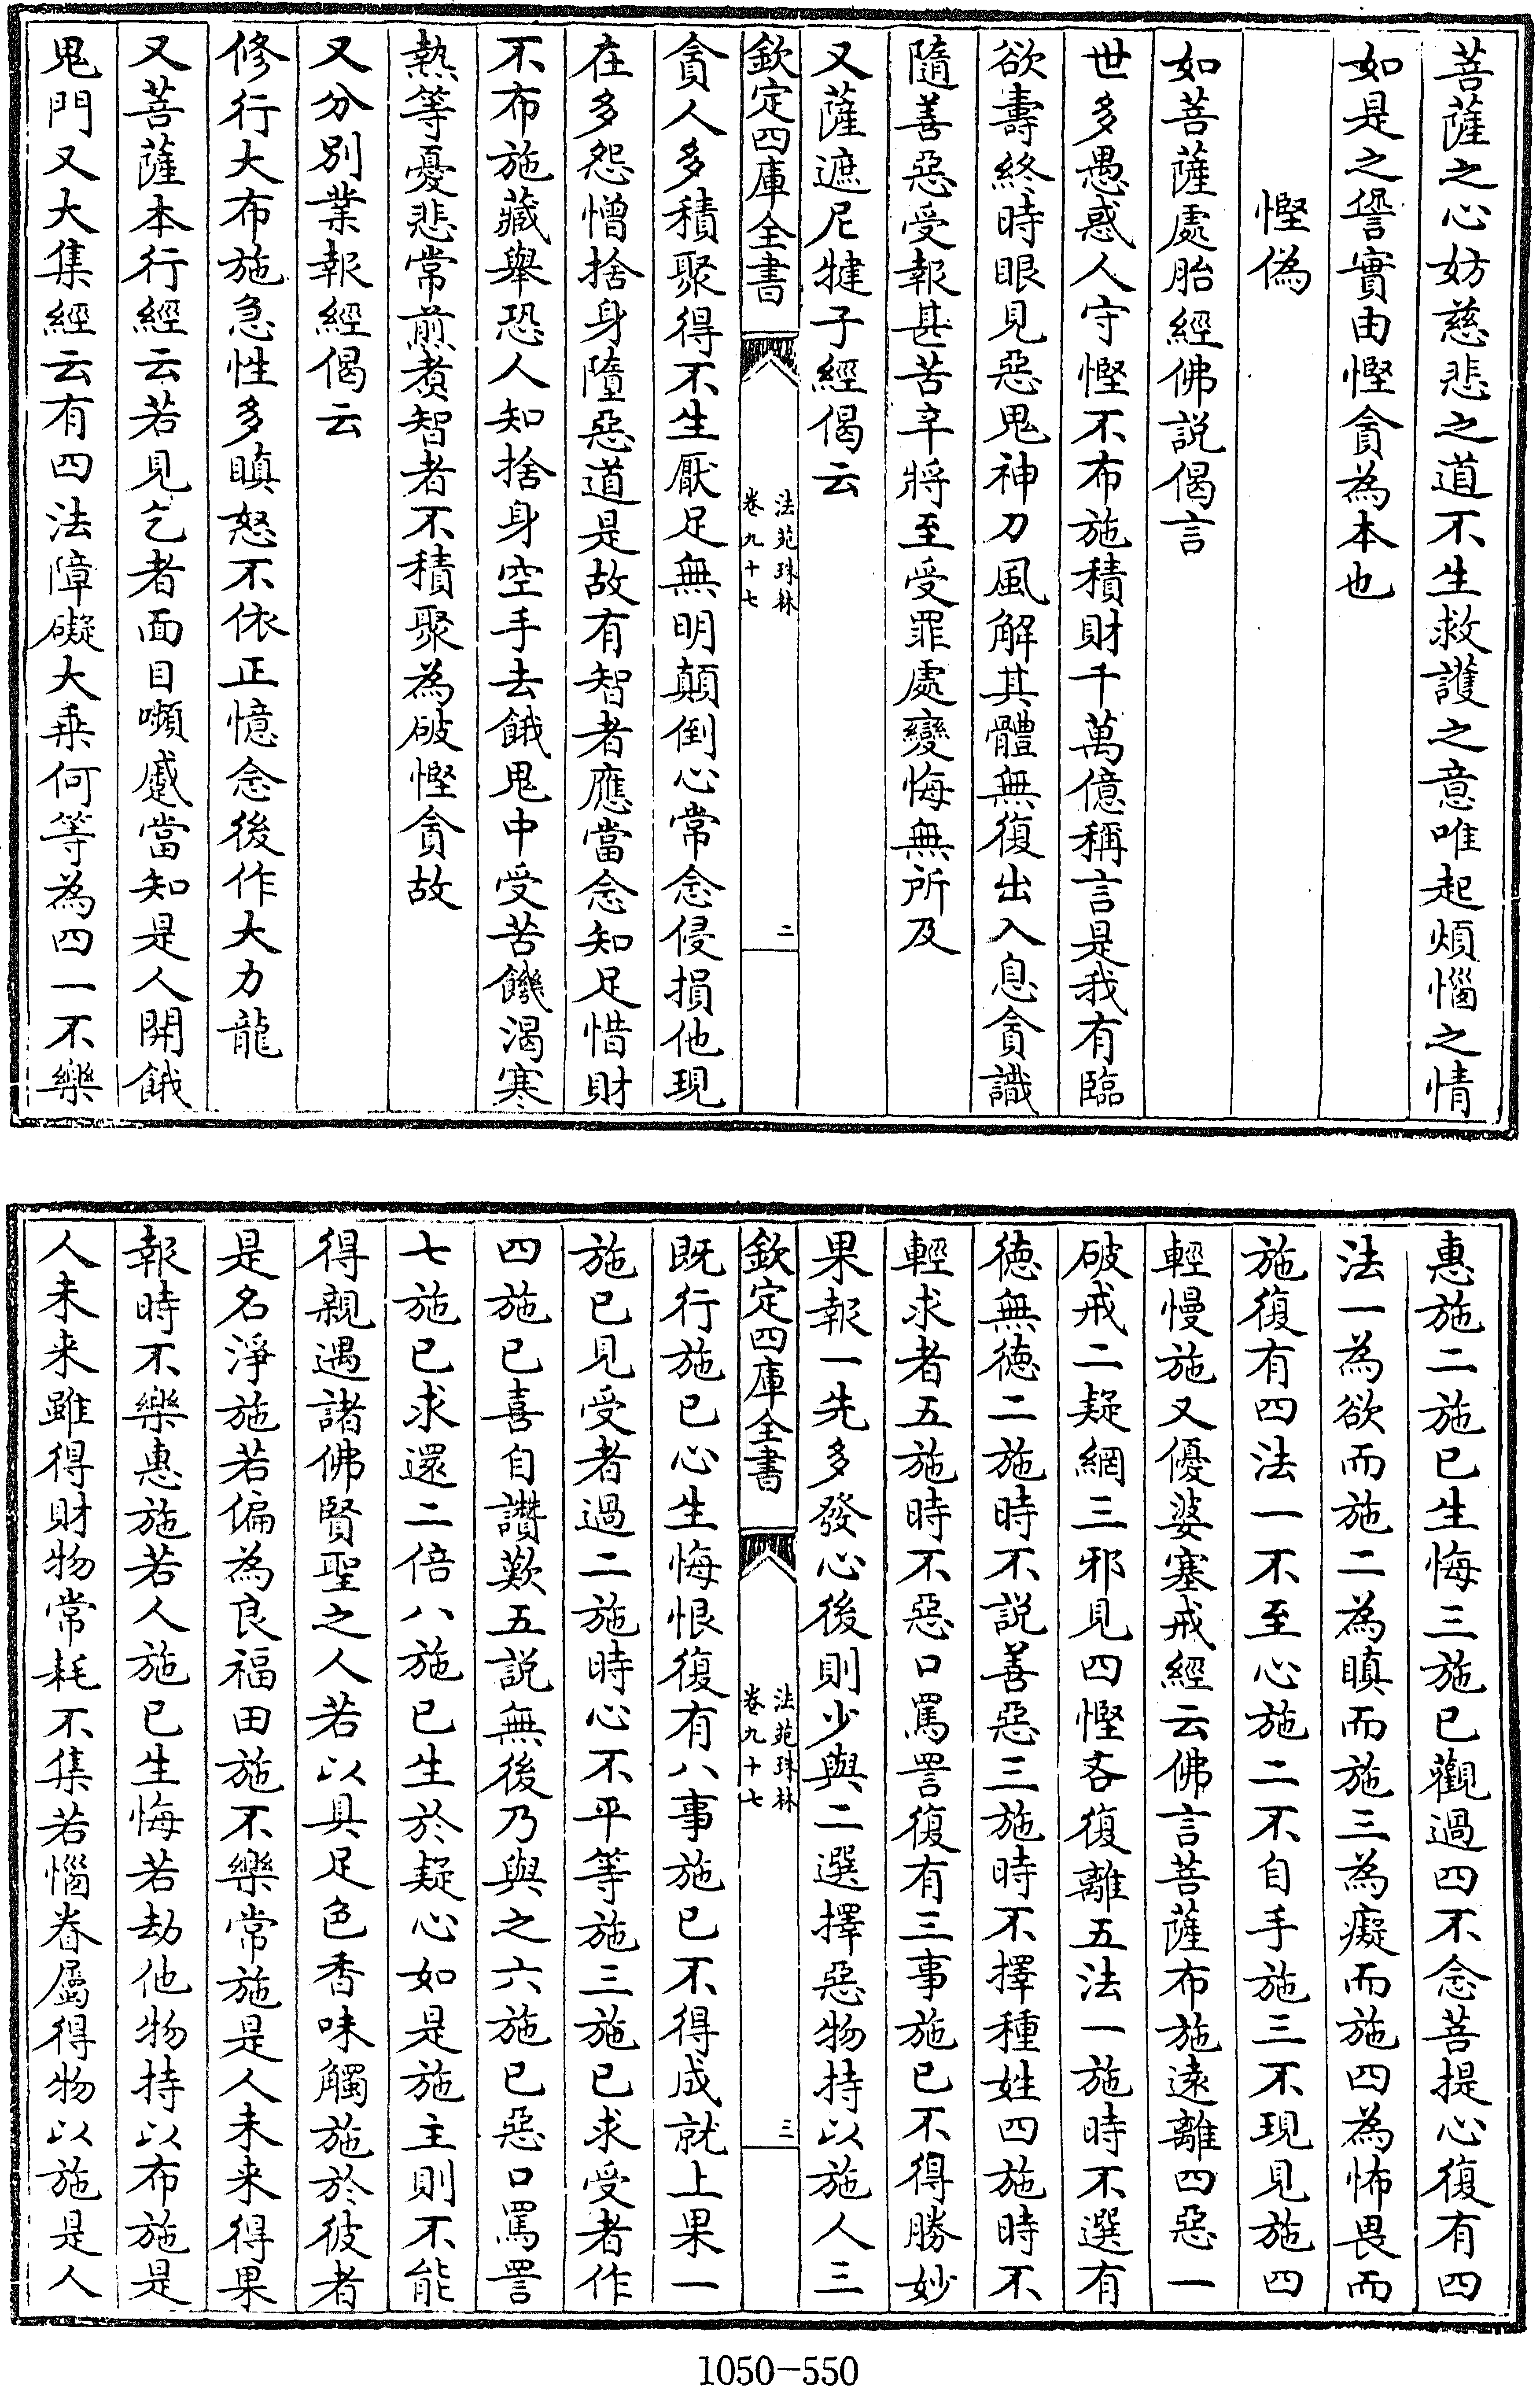 菩薩之心妨慈悲之道不生救護之意唯起煩惱之情
如是之譽實由慳貪為本也
慳偽
如菩薩處胎經佛説偈言
世多愚惑人守慳不布施積財千萬億稱言是我有臨
欲壽終時眼見惡鬼神刀風解其體無復出入息貪識
隨善惡受報甚苦辛將至受罪處變悔無所及
又薩遮尼犍子經偈云
欽定四庫全書
法苑珠林
卷九十七
二
貪人多積聚得不生厭足無明顛倒心常念侵損他現
在多怨憎捨身墮惡道是故有智者應當念知足惜財
不布施藏舉恐人知捨身空手去餓鬼中受苦饑渴寒
熱等憂悲常煎煑智者不積聚為破慳貪故
又分別業報經偈云
修行大布施急性多瞋怒不依正憶念後作大力龍
又菩薩本行經云若見乞者面目嚬蹙當知是人開餓
鬼門又大集經云有四法障礙大乗何等為四一不樂
惠施二施已生悔三施已觀過四不念菩提心復有四
法一為欲而施二為瞋而施三為癡而施四為怖畏而
施復有四法一不至心施二不自手施三不現見施四
輕慢施又優婆塞戒經云佛言菩薩布施逺離四惡一
破戒二疑網三邪見四慳吝復離五法一施時不選有
徳無徳二施時不説善惡三施時不擇種姓四施時不
輕求者五施時不惡口罵詈復有三事施已不得勝妙
果報一先多發心後則少與二選擇惡物持以施人三
欽定四庫全書
法苑珠林
卷九十七
三
既行施已心生悔恨復有八事施已不得成就上果一
施已見受者過二施時心不平等施三施已求受者作
四施已喜自讚歎五説無後乃與之六施已惡口罵詈
七施已求還二倍八施已生於疑心如是施主則不能
得親遇諸佛賢聖之人若以具足色香味觸施於彼者
是名淨施若偏為良福田施不樂常施是人未来得果
報時不樂惠施若人施已生悔若劫他物持以布施是
人未来雖得財物常耗不集若惱眷屬得物以施是人
1050-550